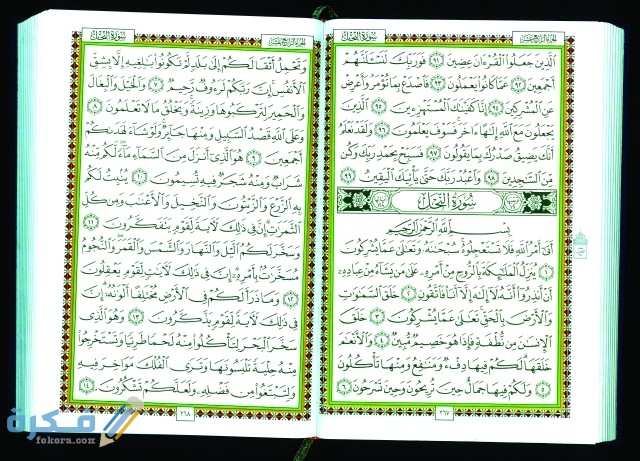 سُورَةُ النَّحْلِ الجزء الرابع عشر
الَّذِينَ جَعَلُوا الْقُرْءَانَ عِضِينَ ٩١ فَوَرَبِّكَ لَنَسْـَٔلَنَّهُمْ
أَجْمَعِينَ ٩٢ عَمَّا كَانُوا يَعْمَلُونَ ٩٣ فَاصْدَعْ بِمَا تُؤْمَرُ وَأَعْرِضْ
عَنِ الْمُشْرِكِينَ ٩٤ إِنَّا كَفَيْنَاكَ الْمُسْتَهْزِءِينَ ٩٥ الَّذِينَ
يَجْعَلُونَ مَعَ اللَّهِ إِلَٰهًا ءَاخَرَ فَسَوْفَ يَعْلَمُونَ ٩٦ وَلَقَدْ نَعْلَمُ
أَنَّكَ يَضِيقُ صَدْرُكَ بِمَا يَقُولُونَ ٩٧ فَسَبِّحْ بِحَمْدِ رَبِّكَ وَكُن
مِّنَ السَّاجِدِينَ ٩٨ وَاعْبُدْ رَبَّكَ حَتَّىٰ يَأْتِيَكَ الْيَقِينُ ٩٩
سُورَةُ النَّحْلِ
بِسْمِ اللَّهِ الرَّحْمَٰنِ الرَّحِيمِ
أَتَىٰ أَمْرُ اللَّهِ فَلَا تَسْتَعْجِلُوهُ سُبْحَانَهُ وَتَعَالَىٰ عَمَّا يُشْرِكُونَ
١ يُنَزِّلُ الْمَلَٰئِكَةَ بِالرُّوحِ مِنْ أَمْرِهِ عَلَىٰ مَن يَشَاءُ مِنْ عِبَادِهِ
أَنْ أَنذِرُوا أَنَّهُ لَا إِلَٰهَ إِلَّا أَنَا فَاتَّقُونِ ٢ خَلَقَ السَّمَٰوَٰتِ
وَالْأَرْضَ بِالْحَقِّ تَعَالَىٰ عَمَّا يُشْرِكُونَ ٣ خَلَقَ
الْإِنسَٰنَ مِن نُّطْفَةٍ فَإِذَا هُوَ خَصِيمٌ مُّبِينٌ ٤ وَالْأَنْعَٰمَ
خَلَقَهَا لَكُمْ فِيهَا دِفْءٌ وَمَنَٰفِعُ وَمِنْهَا تَأْكُلُونَ
٥ وَلَكُمْ فِيهَا جَمَالٌ حِينَ تُرِيحُونَ وَحِينَ تَسْرَحُونَ ٦
٢٦٧
الجزء الرابع عشر سُورَةُ النَّحْلِ
وَتَحْمِلُ أَثْقَالَكُمْ إِلَىٰ بَلَدٍ لَّمْ تَكُونُوا بَٰلِغِيهِ إِلَّا بِشِقِّ
الْأَنفُسِ إِنَّ رَبَّكُمْ لَرَءُوفٌ رَّحِيمٌ ٧ وَالْخَيْلَ وَالْبِغَالَ
وَالْحَمِيرَ لِتَرْكَبُوهَا وَزِينَةً وَيَخْلُقُ مَا لَا تَعْلَمُونَ ٨
وَعَلَى اللَّهِ قَصْدُ السَّبِيلِ وَمِنْهَا جَائِرٌ وَلَوْ شَاءَ لَهَدَىٰكُمْ
أَجْمَعِينَ ٩ هُوَ الَّذِي أَنزَلَ مِنَ السَّمَاءِ مَاءً لَّكُم مِّنْهُ
شَرَابٌ وَمِنْهُ شَجَرٌ فِيهِ تُسِيمُونَ ١٠ يُنبِتُ لَكُم
بِهِ الزَّرْعَ وَالزَّيْتُونَ وَالنَّخِيلَ وَالْأَعْنَٰبَ وَمِن كُلِّ
الثَّمَرَٰتِ إِنَّ فِي ذَٰلِكَ لَءَايَةً لِّقَوْمٍ يَتَفَكَّرُونَ ١١
وَسَخَّرَ لَكُمُ الَّيْلَ وَالنَّهَارَ وَالشَّمْسَ وَالْقَمَرَ وَالنُّجُومُ
مُسَخَّرَٰتٌ بِأَمْرِهِ إِنَّ فِي ذَٰلِكَ لَءَايَٰتٍ لِّقَوْمٍ يَعْقِلُونَ
١٢ وَمَا ذَرَأَ لَكُمْ فِي الْأَرْضِ مُخْتَلِفًا أَلْوَٰنُهُ إِنَّ
فِي ذَٰلِكَ لَءَايَةً لِّقَوْمٍ يَذَّكَّرُونَ ١٣ وَهُوَ الَّذِي
سَخَّرَ الْبَحْرَ لِتَأْكُلُوا مِنْهُ لَحْمًا طَرِيًّا وَتَسْتَخْرِجُوا
مِنْهُ حِلْيَةً تَلْبَسُونَهَا وَتَرَى الْفُلْكَ مَوَاخِرَ فِيهِ
وَلِتَبْتَغُوا مِن فَضْلِهِ وَلَعَلَّكُمْ تَشْكُرُونَ ١٤
٢٦٨
فكرة
fokora.com